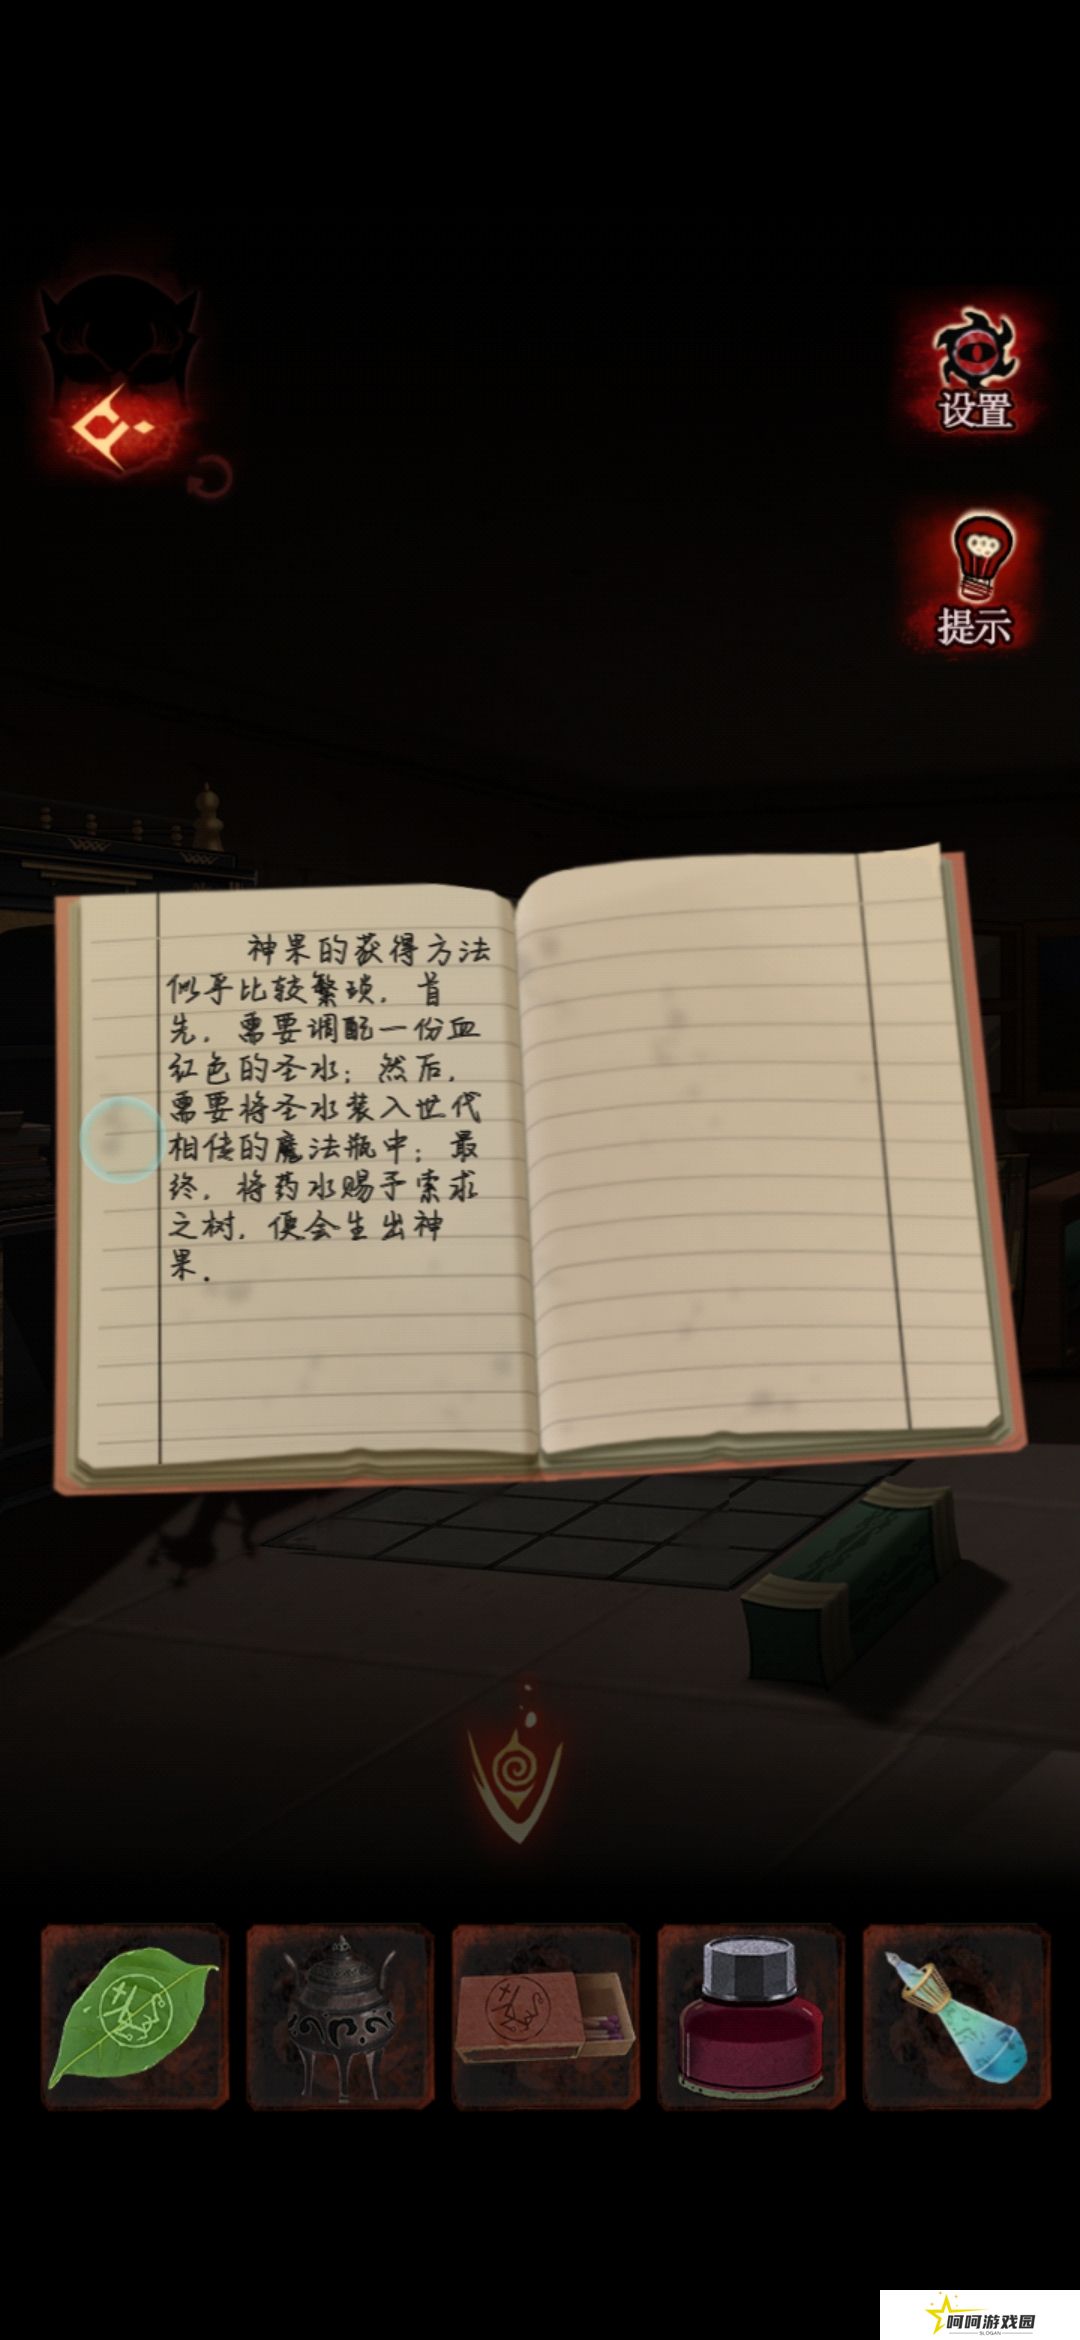 设置
提示
神果的获得方法
似乎比较繁琐，首
先，需要调配一份血
红色的圣水；然后，
需要将圣水装入世代
相传的魔法瓶中；最
终，将药水赐予索求
之树，便会生出神
果。
呵呵游戏园
SLOGAN